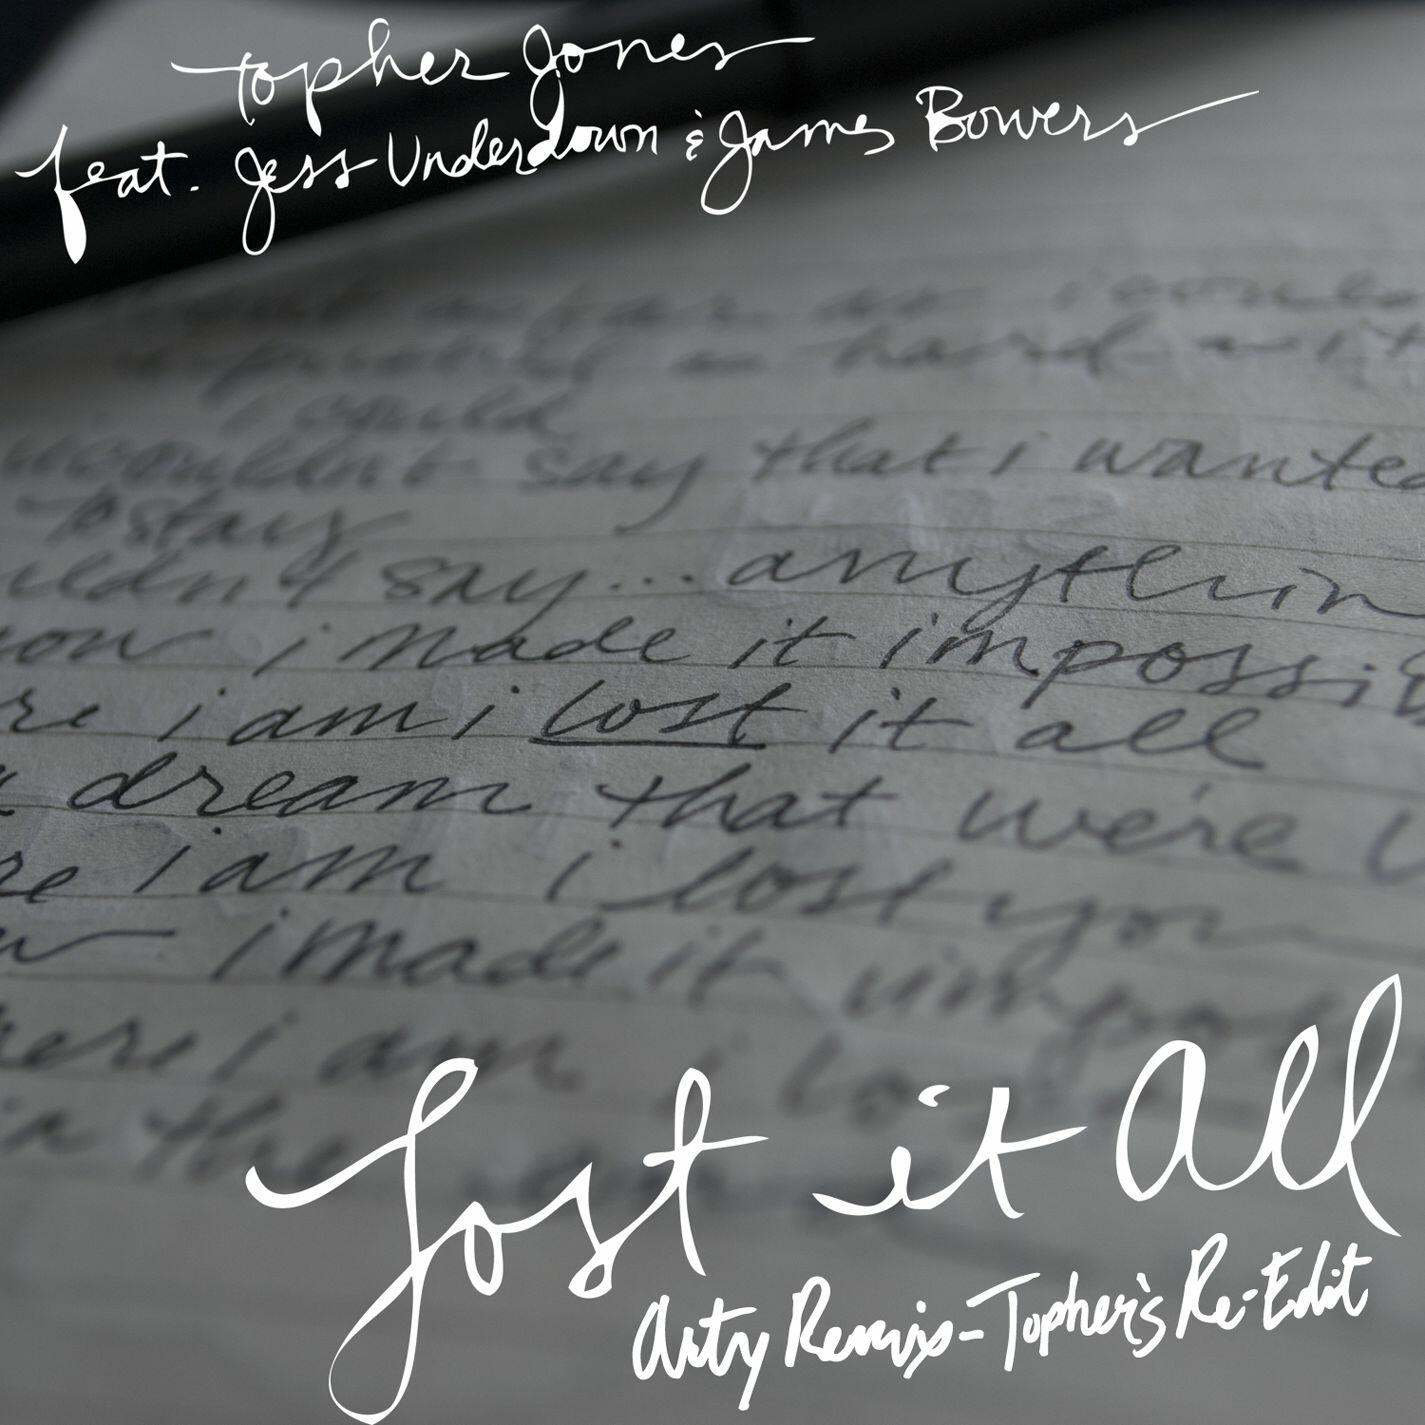 Topher Jones
feat. Jess Underdown & James Bowers
i could
wouldn't say that i wanted
to stay
say... anythin
i made it impossib
i am i lost it all
dream that we're
i am i lost you
i made it
i am i
in the
Lost it All
Arty Remix - Topher's Re-Edit